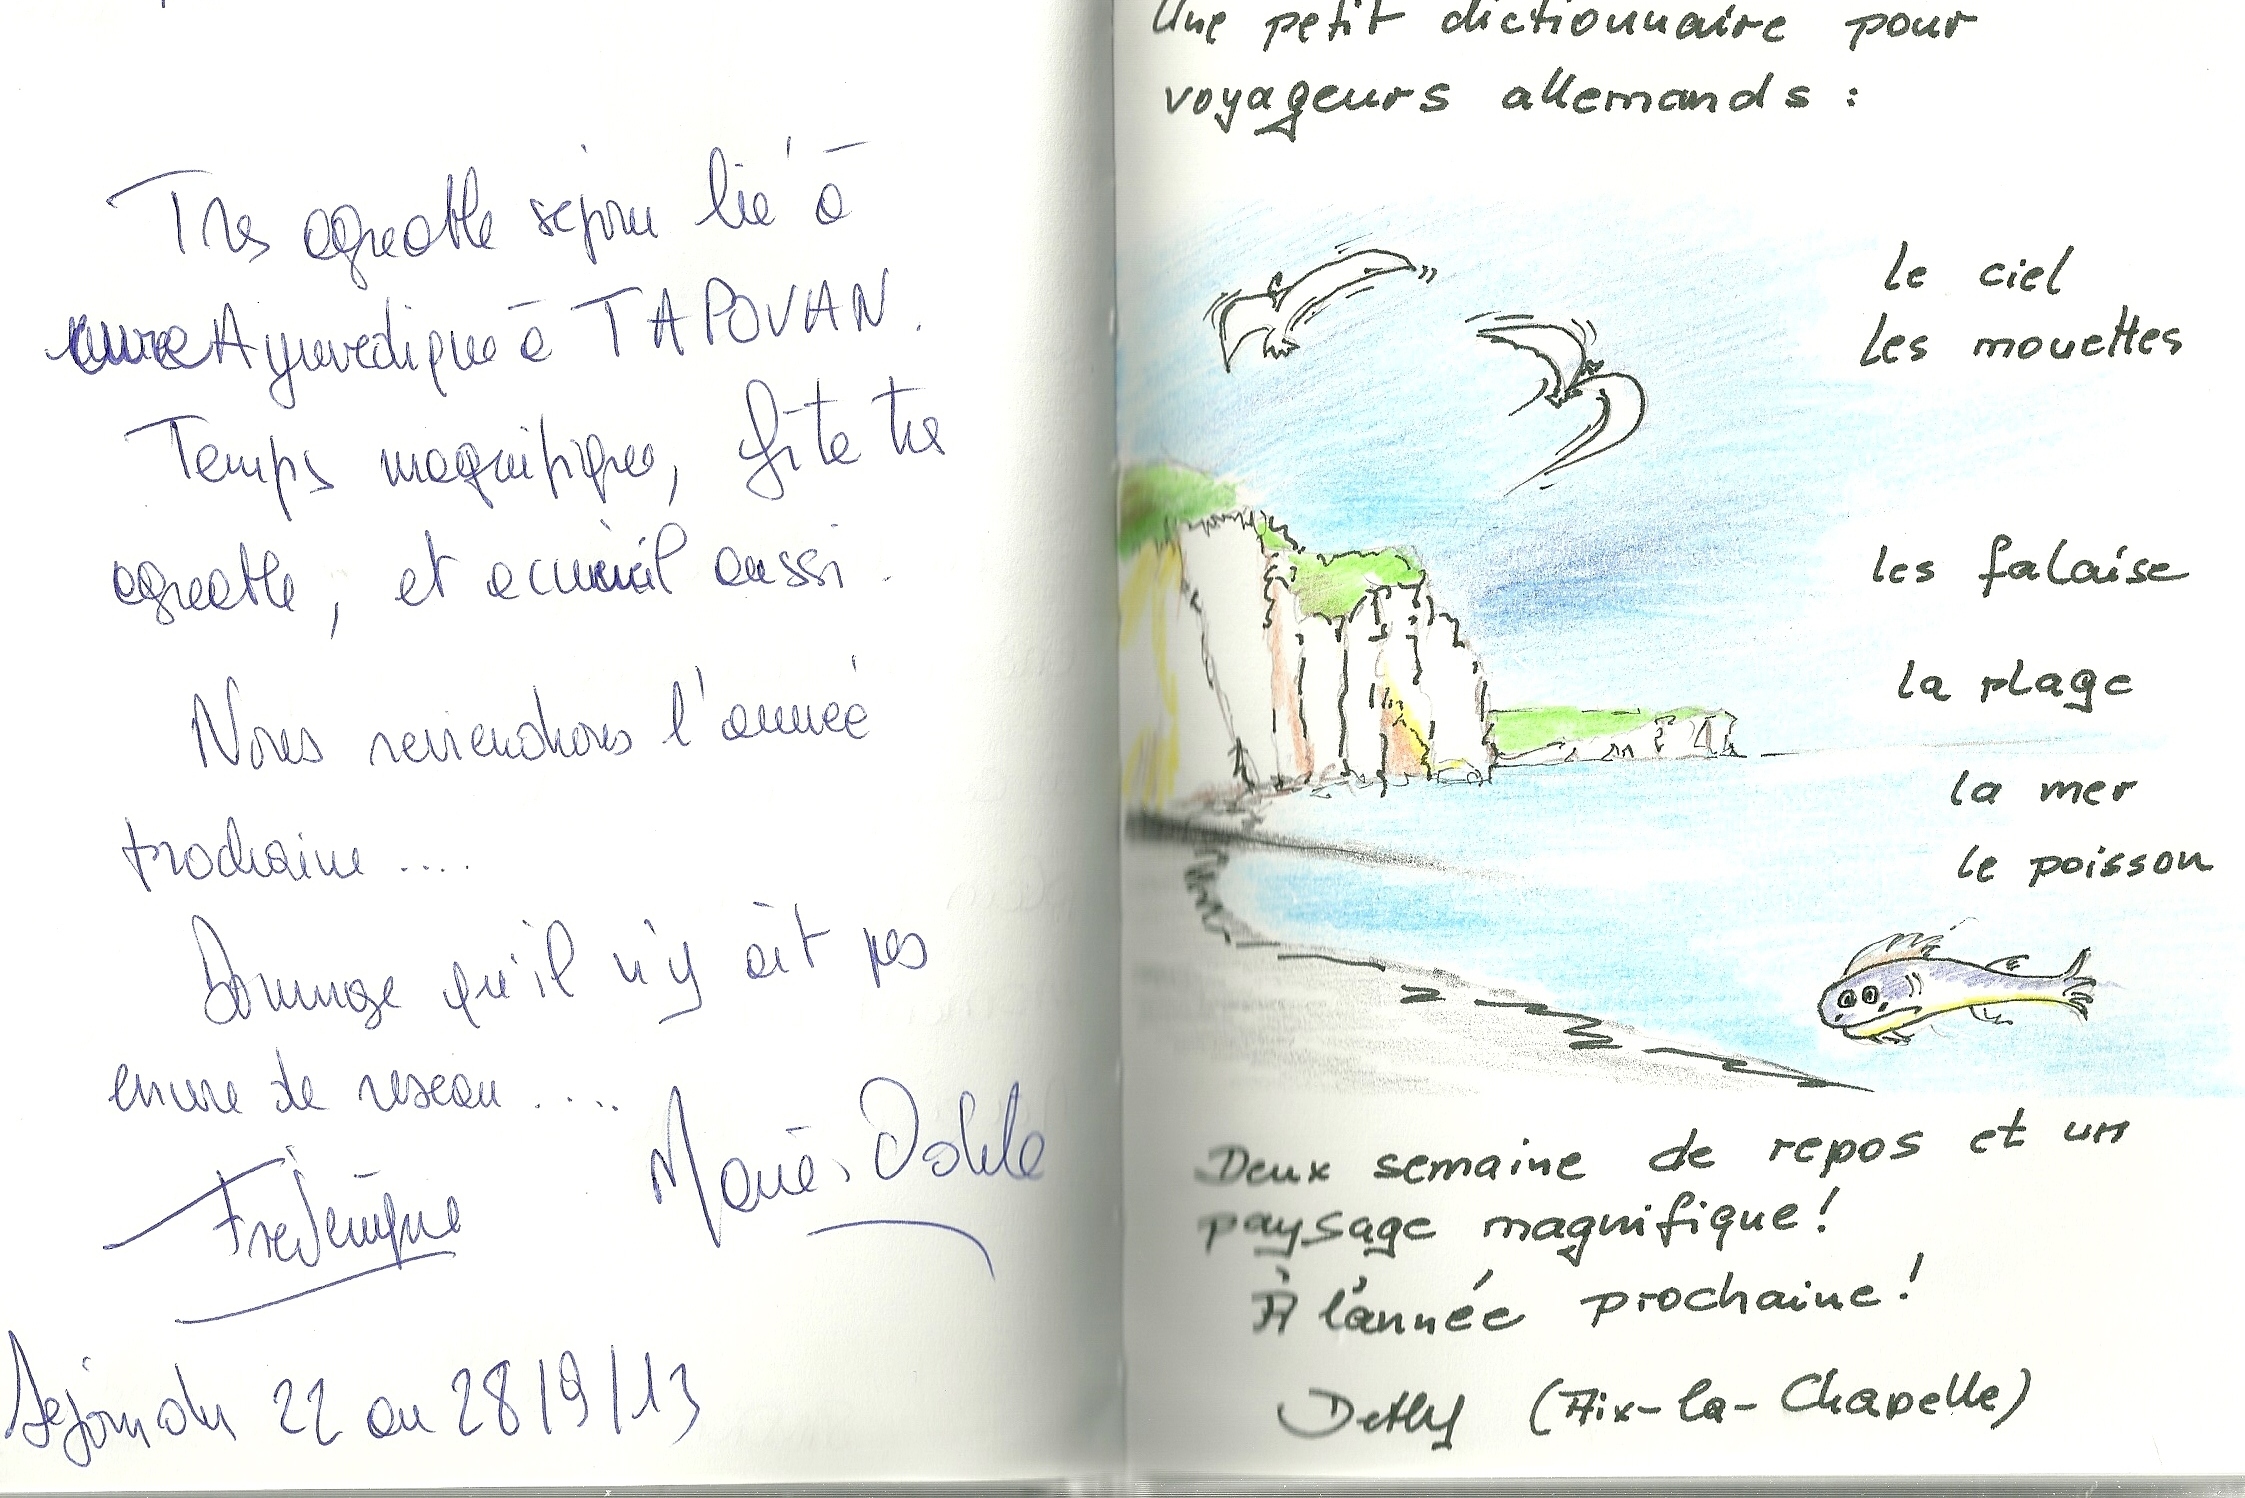 Tres agreable sejour lié à
cure Ayurvedique à TAPOVAN.
Temps magnifique, gîte tres
agreable, et accueil aussi.
Nous reviendrons l'année
prochaine ....
Dommage qu'il n'y ait pas
encore de reseau ....
Frédérique Marie-Odile
Sejour du 22 au 28/9/13
Une petit dictionnaire pour
voyageurs allemands :
le ciel
les mouettes
les falaise
la plage
la mer
le poisson
Deux semaine de repos et un
paysage magnifique!
À l'année prochaine!
(Aix-la-Chapelle)